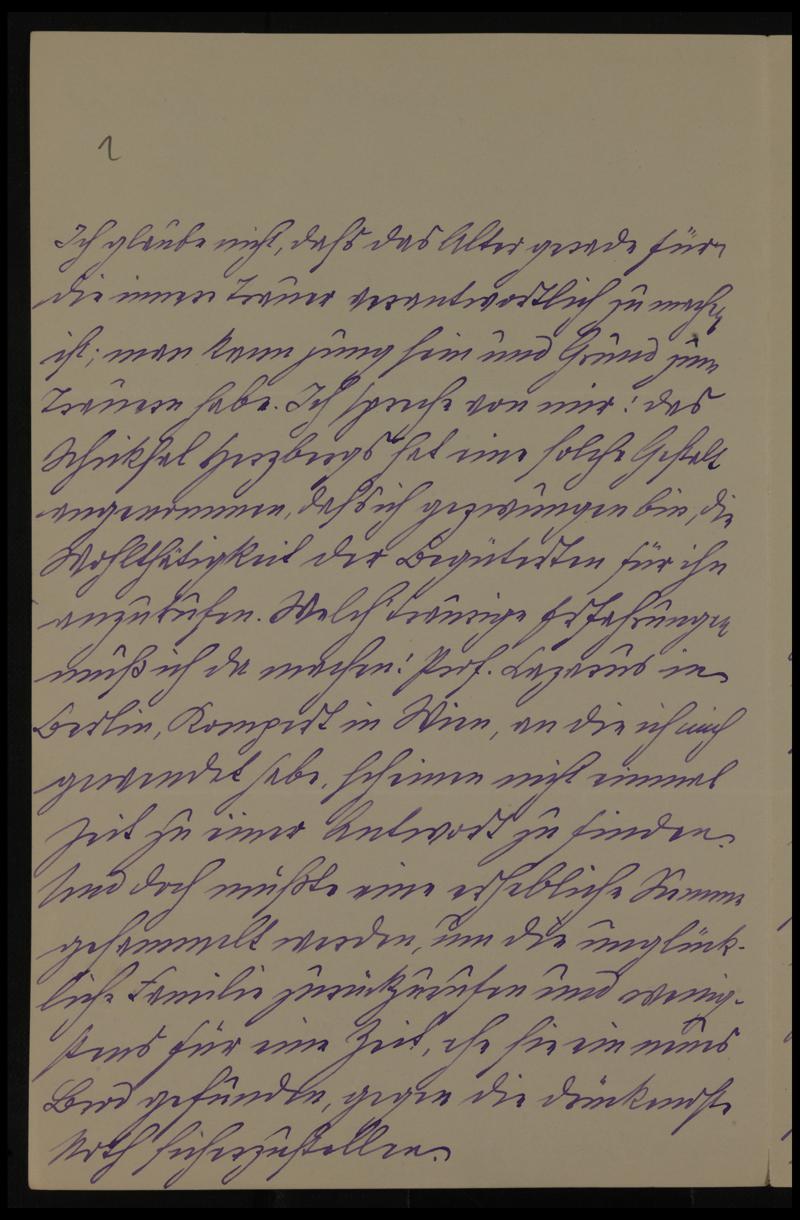 2
Ich glaube nicht, dass das Alter gerade für
die innere Trauer verantwortlich zu machen
ist; man kann jung sein und Grund zum
Trauern habe. Ich spreche von mir: das
Schicksal Herzbergs hat eine solche Gestalt
angenommen, dass ich gezwungen bin, die
Wohlthätigkeit der Begüterten für ihn
anzurufen. Welch' traurige Erfahrungen
muß ich da machen! Prof. Lazarus in
Berlin, Kompert in Wien, an die ich mich
gewendet habe, scheinen nicht einmal
Zeit zu einer Antwort zu finden.
Und doch müßte eine erhebliche Summe
gesammelt werden, um die unglück-
liche Familie zurückzurufen und wenig-
stens für eine Zeit, ehe sie ein neues
Brod gefunden, gegen die drückendste
Noth sicherzustellen.